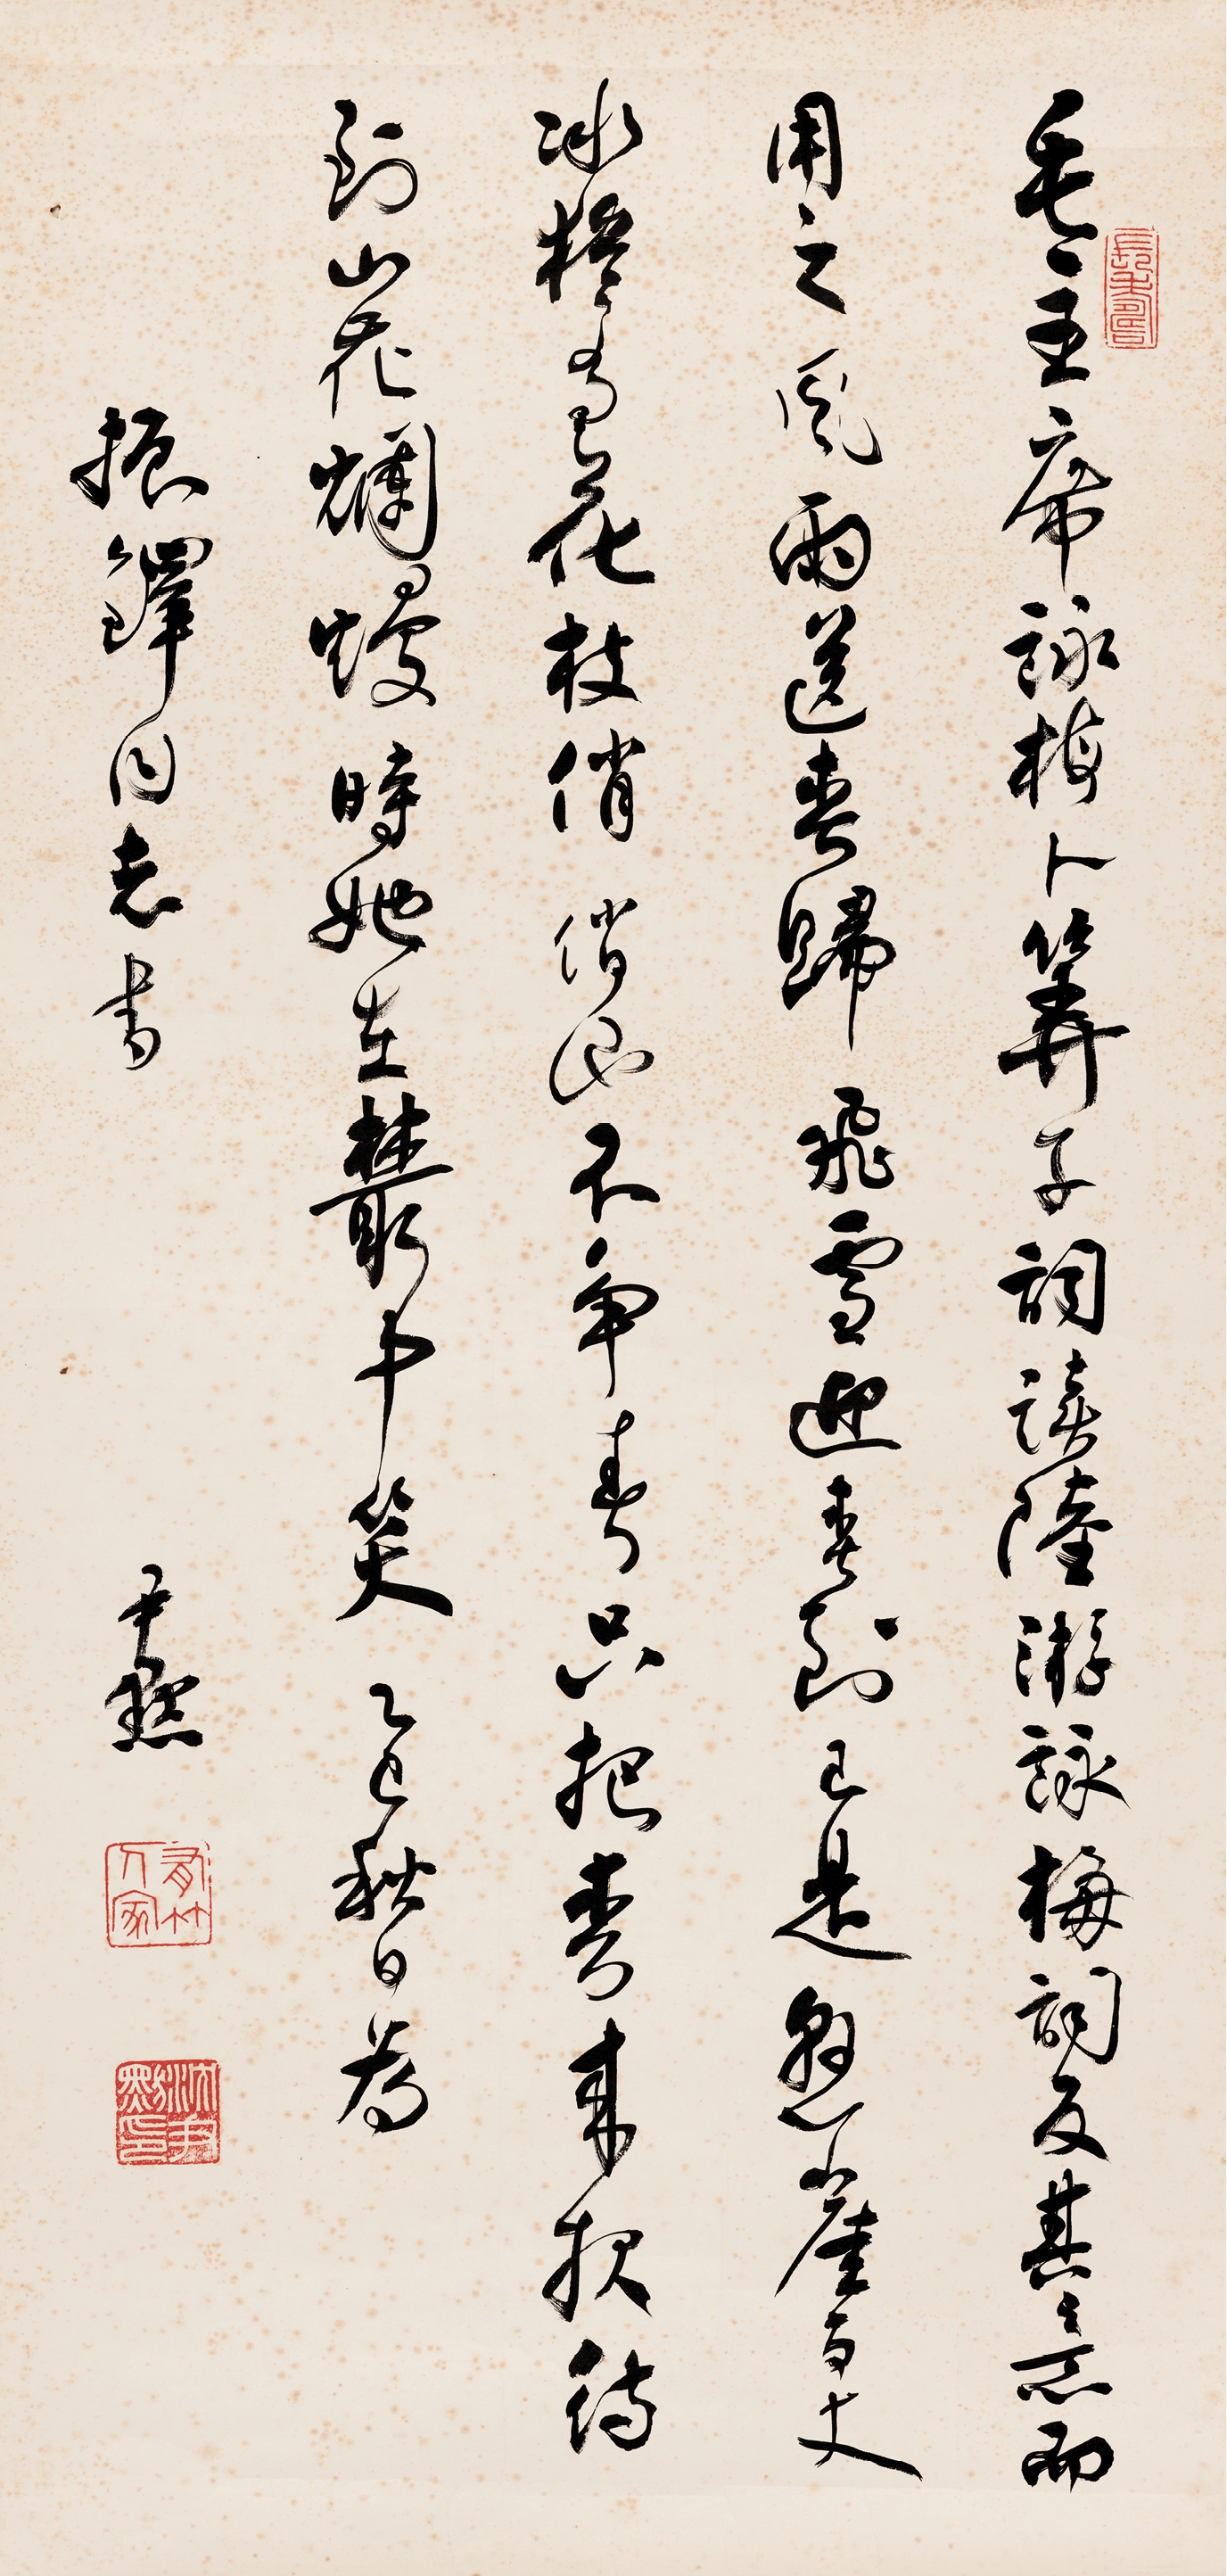 毛主席詠梅卜筭子詞讀陸游詠梅詞反其意而
用之風雨送春歸飛雪迎春到已是懸崖百丈
冰猶有花枝俏俏也不爭春只把春來報待
到山花爛熳時她在叢中笑乙巳秋日為
振鐸同志書
尹默
有竹人家
沈尹默印